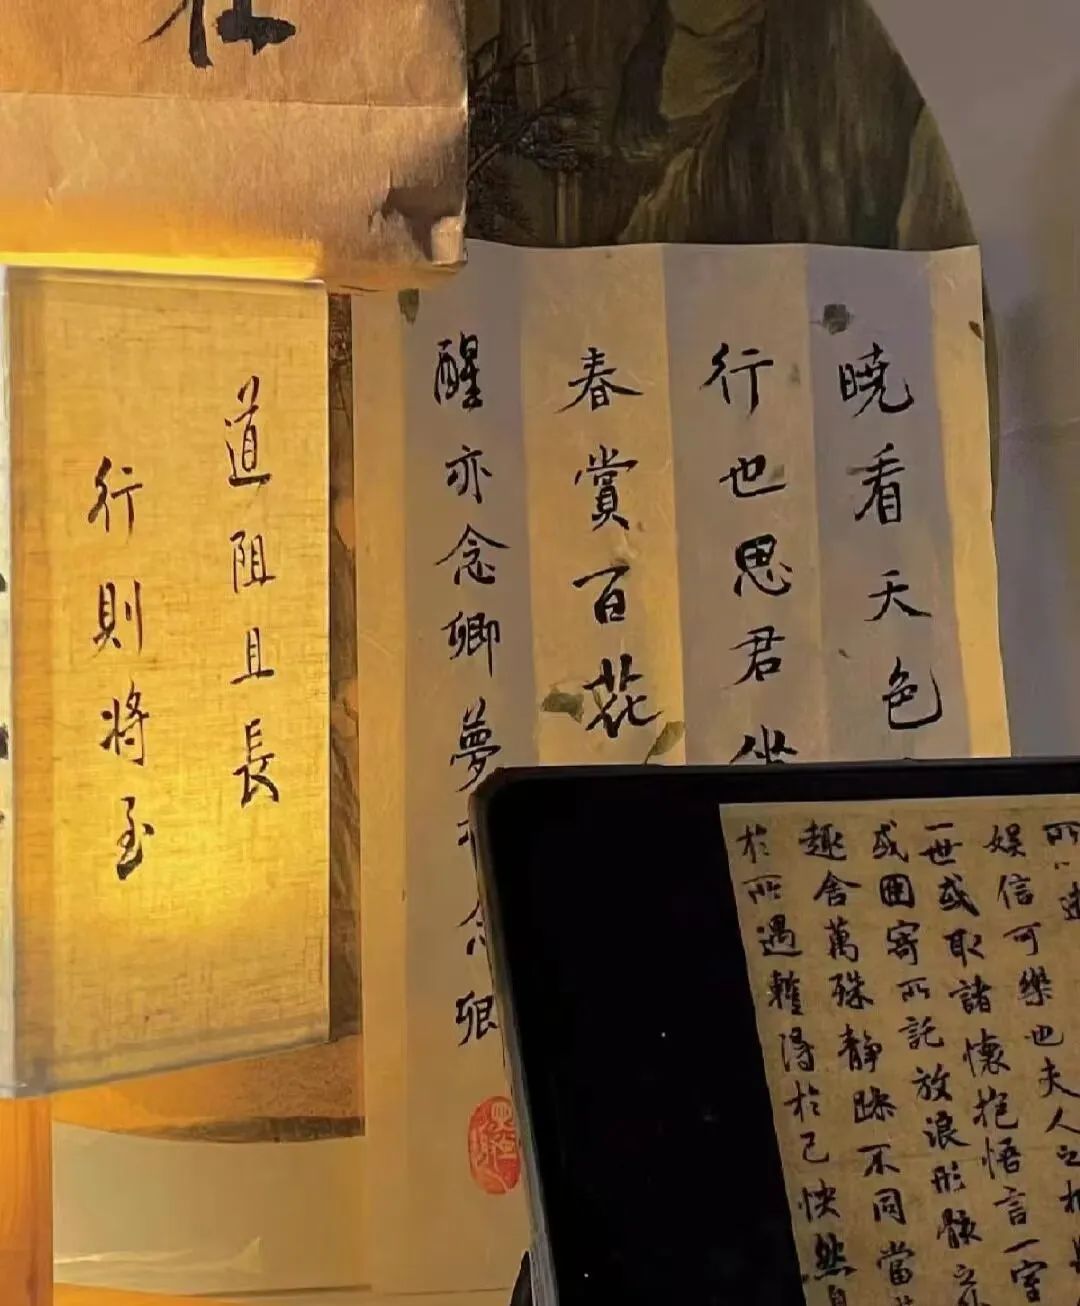 曉看天色
行也思君坐
春賞百花
醒亦念卿夢亦念卿
道阻且長
行則將至
所以遊
娛信可樂也夫人之相
一世或取諸懷抱悟言一室
或因寄所託放浪形骸之
趣舍萬殊静躁不同當
於所遇蹔得於己快然自